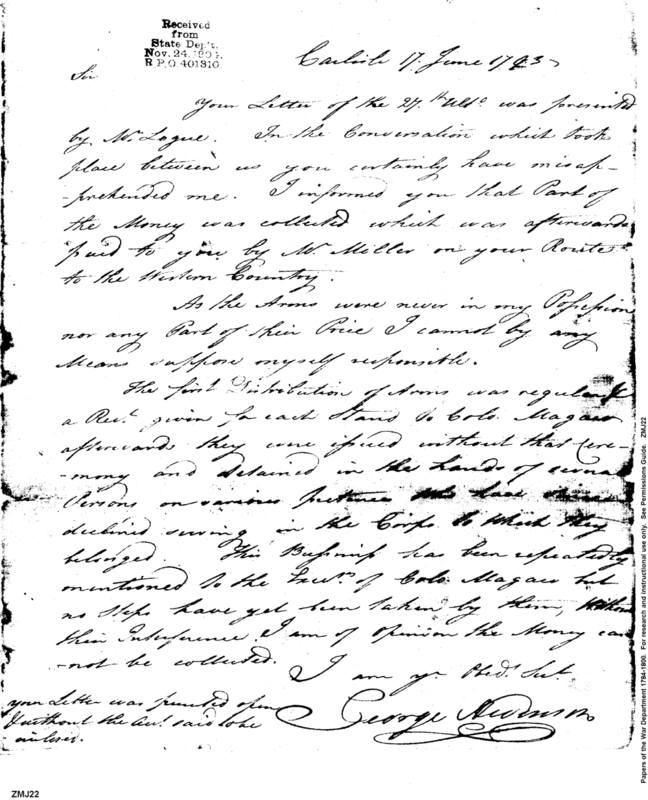 Received
from
State Dep't.
Nov. 24. 1904.
R.P.O 401310
Carlisle 17. June 1793
Sir
Your Letter of the 27.th Ulto. was presented
by Mr. Logue. In the Conversation which took
place between us you certainly have misap-
-prehended me. I informed you that Part of
the Money was collected which was afterwards
paid to you by Mr. Miller on your Route
to the Western Country.
As the Arms were never in my Possession
nor any Part of their Price I cannot by any
Means suppose myself responsible.
The first Distribution of Arms was regular &
a Rect. given for each Stand to Colo. Magaw
afterwards they were issued without that Cere-
-mony and detained in the hands of several
Persons on various pretences who have since
declined serving in the Corps to which they
belonged. This Bussiness has been repeatedly
mentioned to the Execrs. of Colo. Magaw but
no Steps have yet been taken by them, without
their Interference I am of opinion the Money can
-not be collected.
I am yr. Obed. Sert.
George Stevenson
your Letter was presented open
& without the Acct. said to be
inclosed.
ZMJ22
Papers of the War Department 1784-1800. For research and instructional use only. See Permissions Guide. ZMJ22